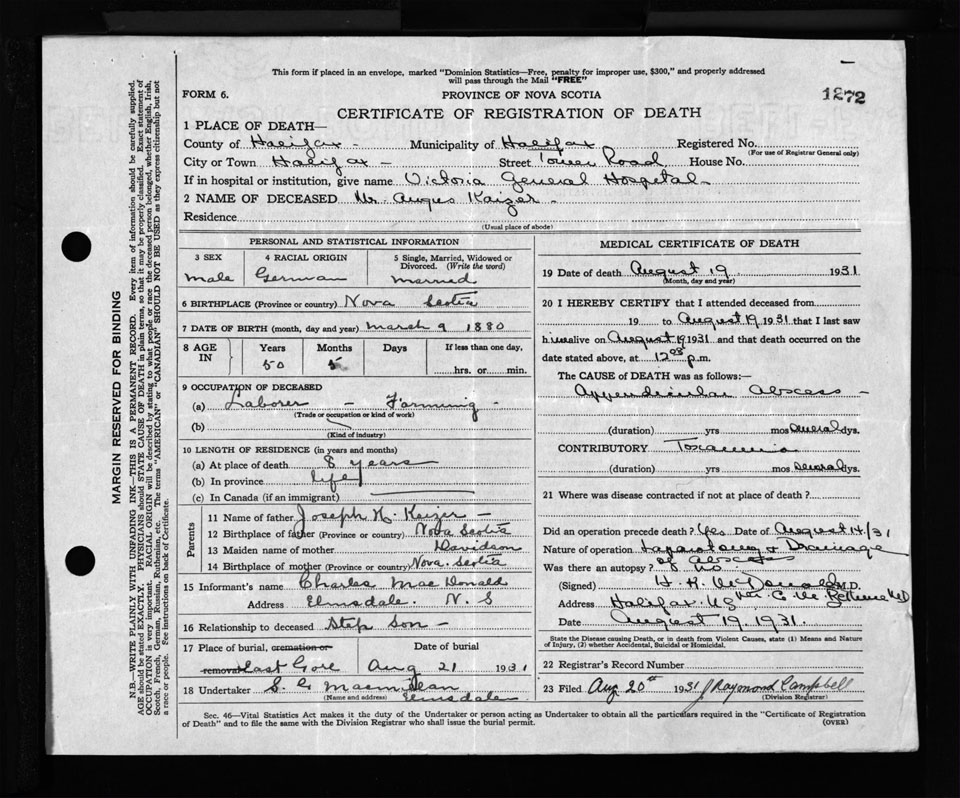 This form if placed in an envelope, marked "Dominion Statistics—Free, penalty for improper use, $300," and properly addressed
will pass through the Mail "FREE"
FORM 6.
PROVINCE OF NOVA SCOTIA
1272
CERTIFICATE OF REGISTRATION OF DEATH
1 PLACE OF DEATH—
County of Halifax - Municipality of Halifax Registered No.
(For use of Registrar General only)
City or Town Halifax - Street Tower Road House No.
If in hospital or institution, give name Victoria General Hospital
2 NAME OF DECEASED Mr. Angus Kaizer -
Residence
(Usual place of abode)
PERSONAL AND STATISTICAL INFORMATION
3 SEX
4 RACIAL ORIGIN
5 Single, Married, Widowed or
Divorced. (Write the word)
male German married
6 BIRTHPLACE (Province or country) Nova Scotia
7 DATE OF BIRTH (month, day and year) March 9 1880
8 AGE IN Years Months Days If less than one day,
50 5 hrs. or min.
9 OCCUPATION OF DECEASED
(a) Laborer - Farming -
(Trade or occupation or kind of work)
(b)
(Kind of industry)
10 LENGTH OF RESIDENCE (in years and months)
(a) At place of death 8 years
(b) In province life
(c) In Canada (if an immigrant)
Parents
11 Name of father Joseph H. Keizer -
12 Birthplace of father (Province or country) Nova Scotia
13 Maiden name of mother Davidson
14 Birthplace of mother (Province or country) Nova. Scotia
15 Informant's name Charles Mac Donald
Address Elmsdale. N. S
16 Relationship to deceased Step Son -
17 Place of burial, cremation or Date of burial
removal East Gore Aug 21 1931
18 Undertaker Elmsdale
(Name and address)
MEDICAL CERTIFICATE OF DEATH
19 Date of death August 19 1931
(Month, day and year)
20 I HEREBY CERTIFY that I attended deceased from
19 to August 19 1931 that I last saw
him alive on August 19 1931 and that death occurred on the
date stated above, at 12 p.m.
The CAUSE of DEATH was as follows:—
Appendicular Abscess -
(duration) yrs mos several dys.
CONTRIBUTORY Toxaemia
(duration) yrs mos several dys.
21 Where was disease contracted if not at place of death?
Did an operation precede death? Yes Date of August 14/31
Nature of operation Laparotomy & Drainage
of abscess
Was there an autopsy? No
(Signed) M.D.
Address Halifax NS
Date August 19. 1931.
State the Disease causing Death, or in death from Violent Causes, state (1) Means and Nature
of Injury, (2) whether Accidental, Suicidal or Homicidal.
22 Registrar's Record Number
23 Filed Aug 20th 1931 J Raymond Campbell
(Division Registrar)
Sec. 46—Vital Statistics Act makes it the duty of the Undertaker or person acting as Undertaker to obtain all the particulars required in the "Certificate of Registration
of Death" and to file the same with the Division Registrar who shall issue the burial permit.
(OVER)
MARGIN RESERVED FOR BINDING
N.B.—WRITE PLAINLY WITH UNFADING INK—THIS IS A PERMANENT RECORD. Every item of information should be carefully supplied.
AGE should be stated EXACTLY. PHYSICIANS should STATE CAUSE OF DEATH in plain terms, so that it may be properly classified. Exact statement of
OCCUPATION is very important. RACIAL ORIGIN will be described by stating to what people or race the deceased person belonged, whether English, Irish,
Scotch, French, German, Russian, Ruthenian, etc. The terms "AMERICAN" or "CANADIAN" SHOULD NOT BE USED as they express citizenship but not
a race or people. See instructions on back of Certificate.